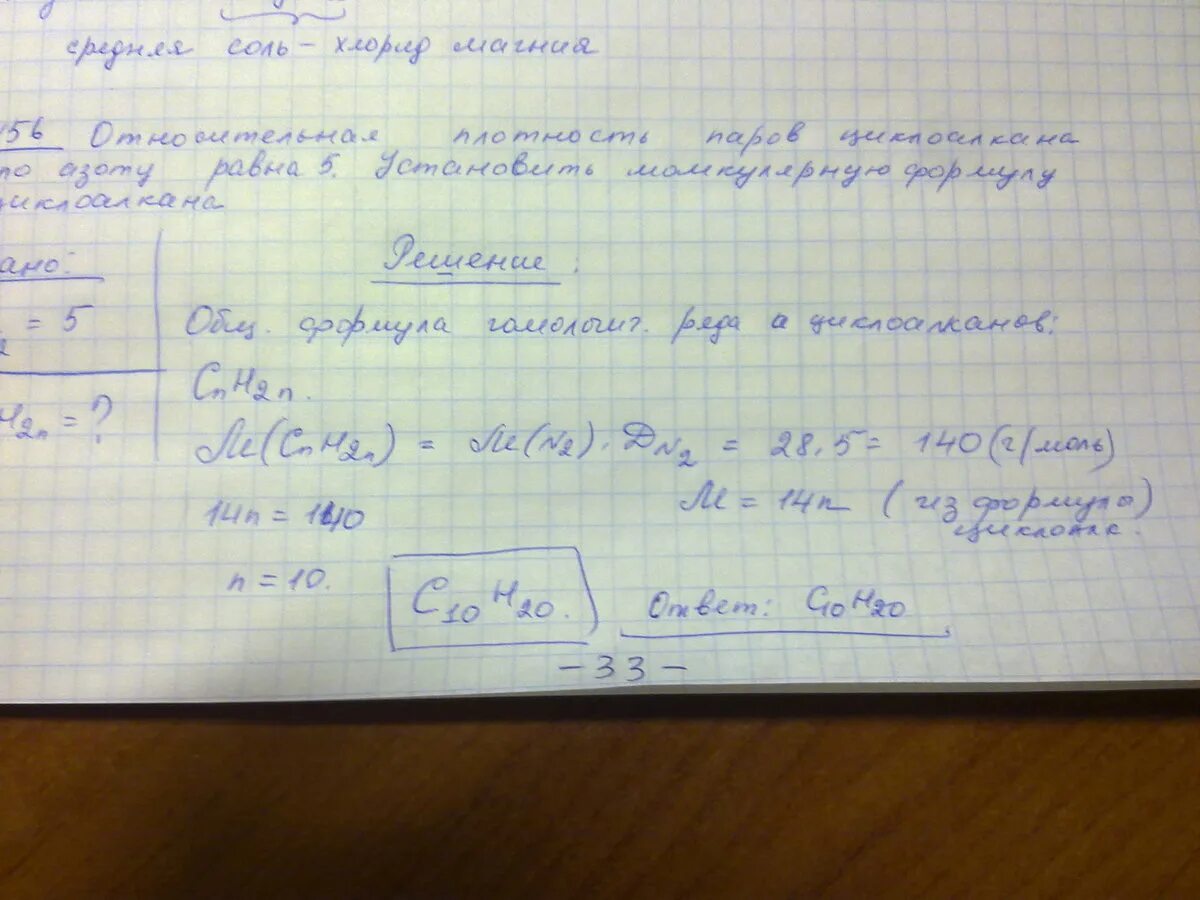 средняя соль – хлорид магния
156 Относительная плотность паров циклоалкана
по азоту равна 5. Установить молкулярную формулу
циклоалкана
ано: Решение:
= 5 Общ. формула гомологиг. ряда а циклоалканов:
2
CnH2n.
H2n = ?
M(CnH2n) = M(N2) · DN2 = 28.5 = 140 (г/моль)
14n = 140 M = 14n (из формулы)
циклоалк.
n = 10. C10H20. Ответ: C10H20
– 33 –